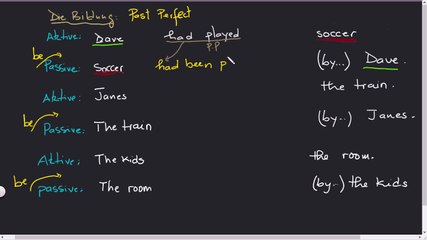 Die Bildung: Past Perfect
Aktive: Dave had played soccer
pp
be
Passive: Soccer had been p (by...) Dave.
Aktive: Janes the train.
be
Passive: The train (by..) Janes.
Aktive: The kids the room.
be
passive: The room (by..) the kids